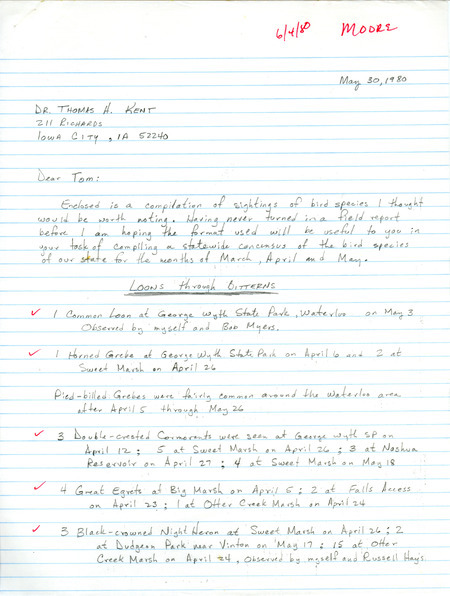 6/4/80 MOORE
May 30, 1980
DR. THOMAS H. KENT
211 RICHARDS
IOWA CITY, IA 52240
Dear Tom:
Enclosed is a compilation of sightings of bird species I thought
would be worth noting. Having never turned in a field report
before I am hoping the format used will be useful to you in
your task of compiling a statewide concensus of the bird species
of our state for the months of March, April and May.
LOONS through BITTERNS
✓ 1 Common Loon at George Wyth State Park, Waterloo on May 3
Observed by myself and Bob Myers.
✓ 1 Horned Grebe at George Wyth State Park on April 6 and 2 at
Sweet Marsh on April 26
Pied-billed Grebes were fairly common around the Waterloo area
after April 5 through May 26
✓ 3 Double-crested Cormorants were seen at George Wyth SP on
April 12; 5 at Sweet Marsh on April 26; 3 at Nashua
Reservoir on April 27; 4 at Sweet Marsh on May 18
✓ 4 Great Egrets at Big Marsh on April 5; 2 at Falls Access
on April 23; 1 at Otter Creek Marsh on April 24
✓ 3 Black-crowned Night Heron at Sweet Marsh on April 26; 2
at Dudgeon Park near Vinton on May 17; 15 at Otter
Creek Marsh on April 24, Observed by myself and Russell Hays